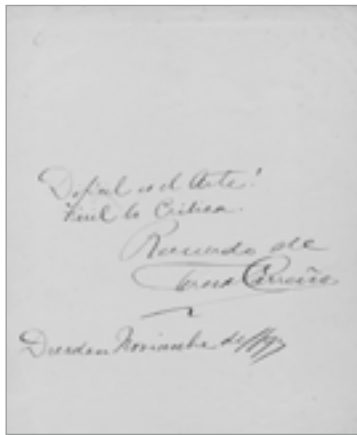 Dificil es el Arte!
Fácil la Crítica.
Recuerdo de
Teresa Carreño
Dresden Noviembre de 1897